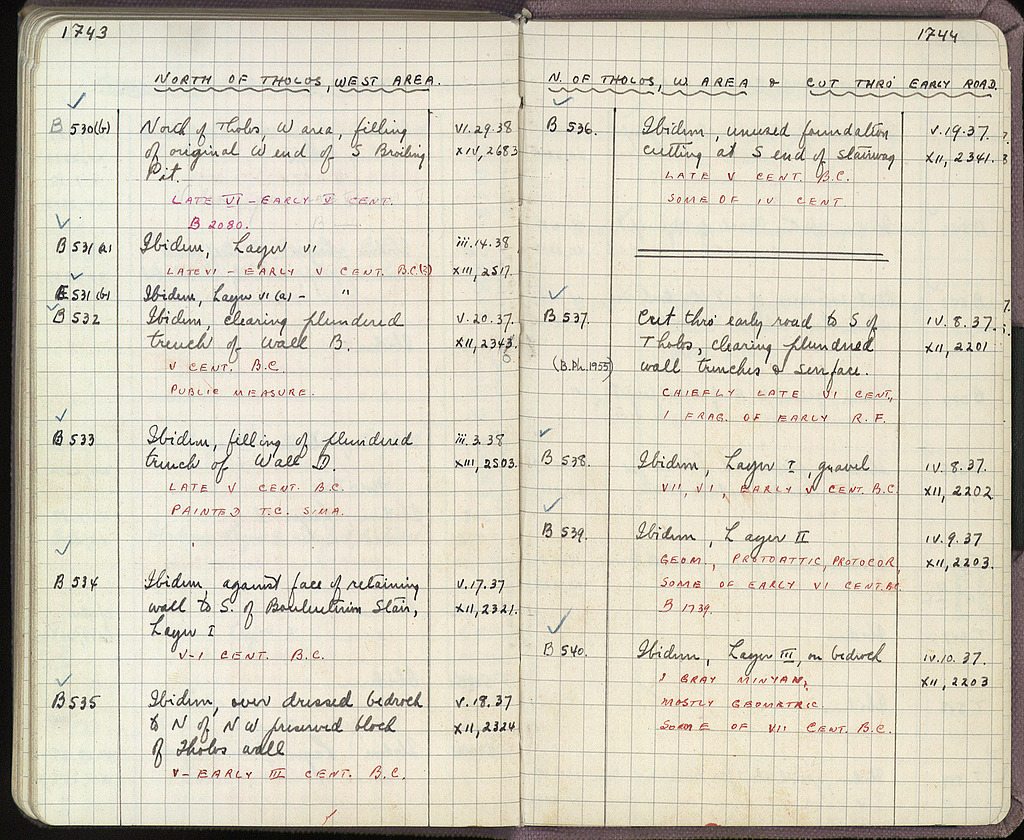 1743
NORTH OF THOLOS, WEST AREA.
B 530(b) North of Tholos, W area, filling VI.29.38
of original W end of S Broiling XIV, 2683
Pit.
LATE VI - EARLY V CENT.
B 2080.
B 531(a) Ibidem, Layer VI iii.14.38
LATE VI - EARLY V CENT. B.C. XIII, 2517.
B 531(b) Ibidem, Layer VI (a) - "
B 532 Ibidem, clearing plundered V.20.37.
trench of Wall B. XII, 2343.
V CENT. B.C.
PUBLIC MEASURE.
B 533 Ibidem, filling of plundered iii.3.38
trench of Wall D. XIII, 2503.
LATE V CENT. B.C.
PAINTED T.C. SIMA.
B 534 Ibidem, against face of retaining V.17.37
wall to S. of Bouleuterion Stair, XII, 2321.
Layer I
V-I CENT. B.C.
B 535 Ibidem, over dressed bedrock V.18.37
to N of NW preserved block XII, 2324
of Tholos wall
V - EARLY III CENT. B.C.
1744
N. OF THOLOS, W AREA & CUT THRO' EARLY ROAD.
B 536. Ibidem, unused foundation V.19.37.
cutting at S end of stairway XII, 2341.
LATE V CENT. B.C.
SOME OF IV CENT.
B 537. Cut thro' early road to S of IV.8.37.
Tholos, clearing plundered XII, 2201
(B.Ph. 1955) wall trenches & surface.
CHIEFLY LATE VI CENT.,
1 FRAG. OF EARLY R.F.
B 538. Ibidem, Layer I, gravel IV.8.37.
VII, VI, EARLY V CENT. B.C. XII, 2202
B 539. Ibidem, Layer II IV.9.37
GEOM., PROTOATTIC, PROTOCOR, XII, 2203.
SOME OF EARLY VI CENT. B.C.
B 1739.
B 540. Ibidem, Layer III, on bedrock IV.10.37.
1 GRAY MINYAN, XII, 2203
MOSTLY GEOMETRIC
SOME OF VII CENT. B.C.